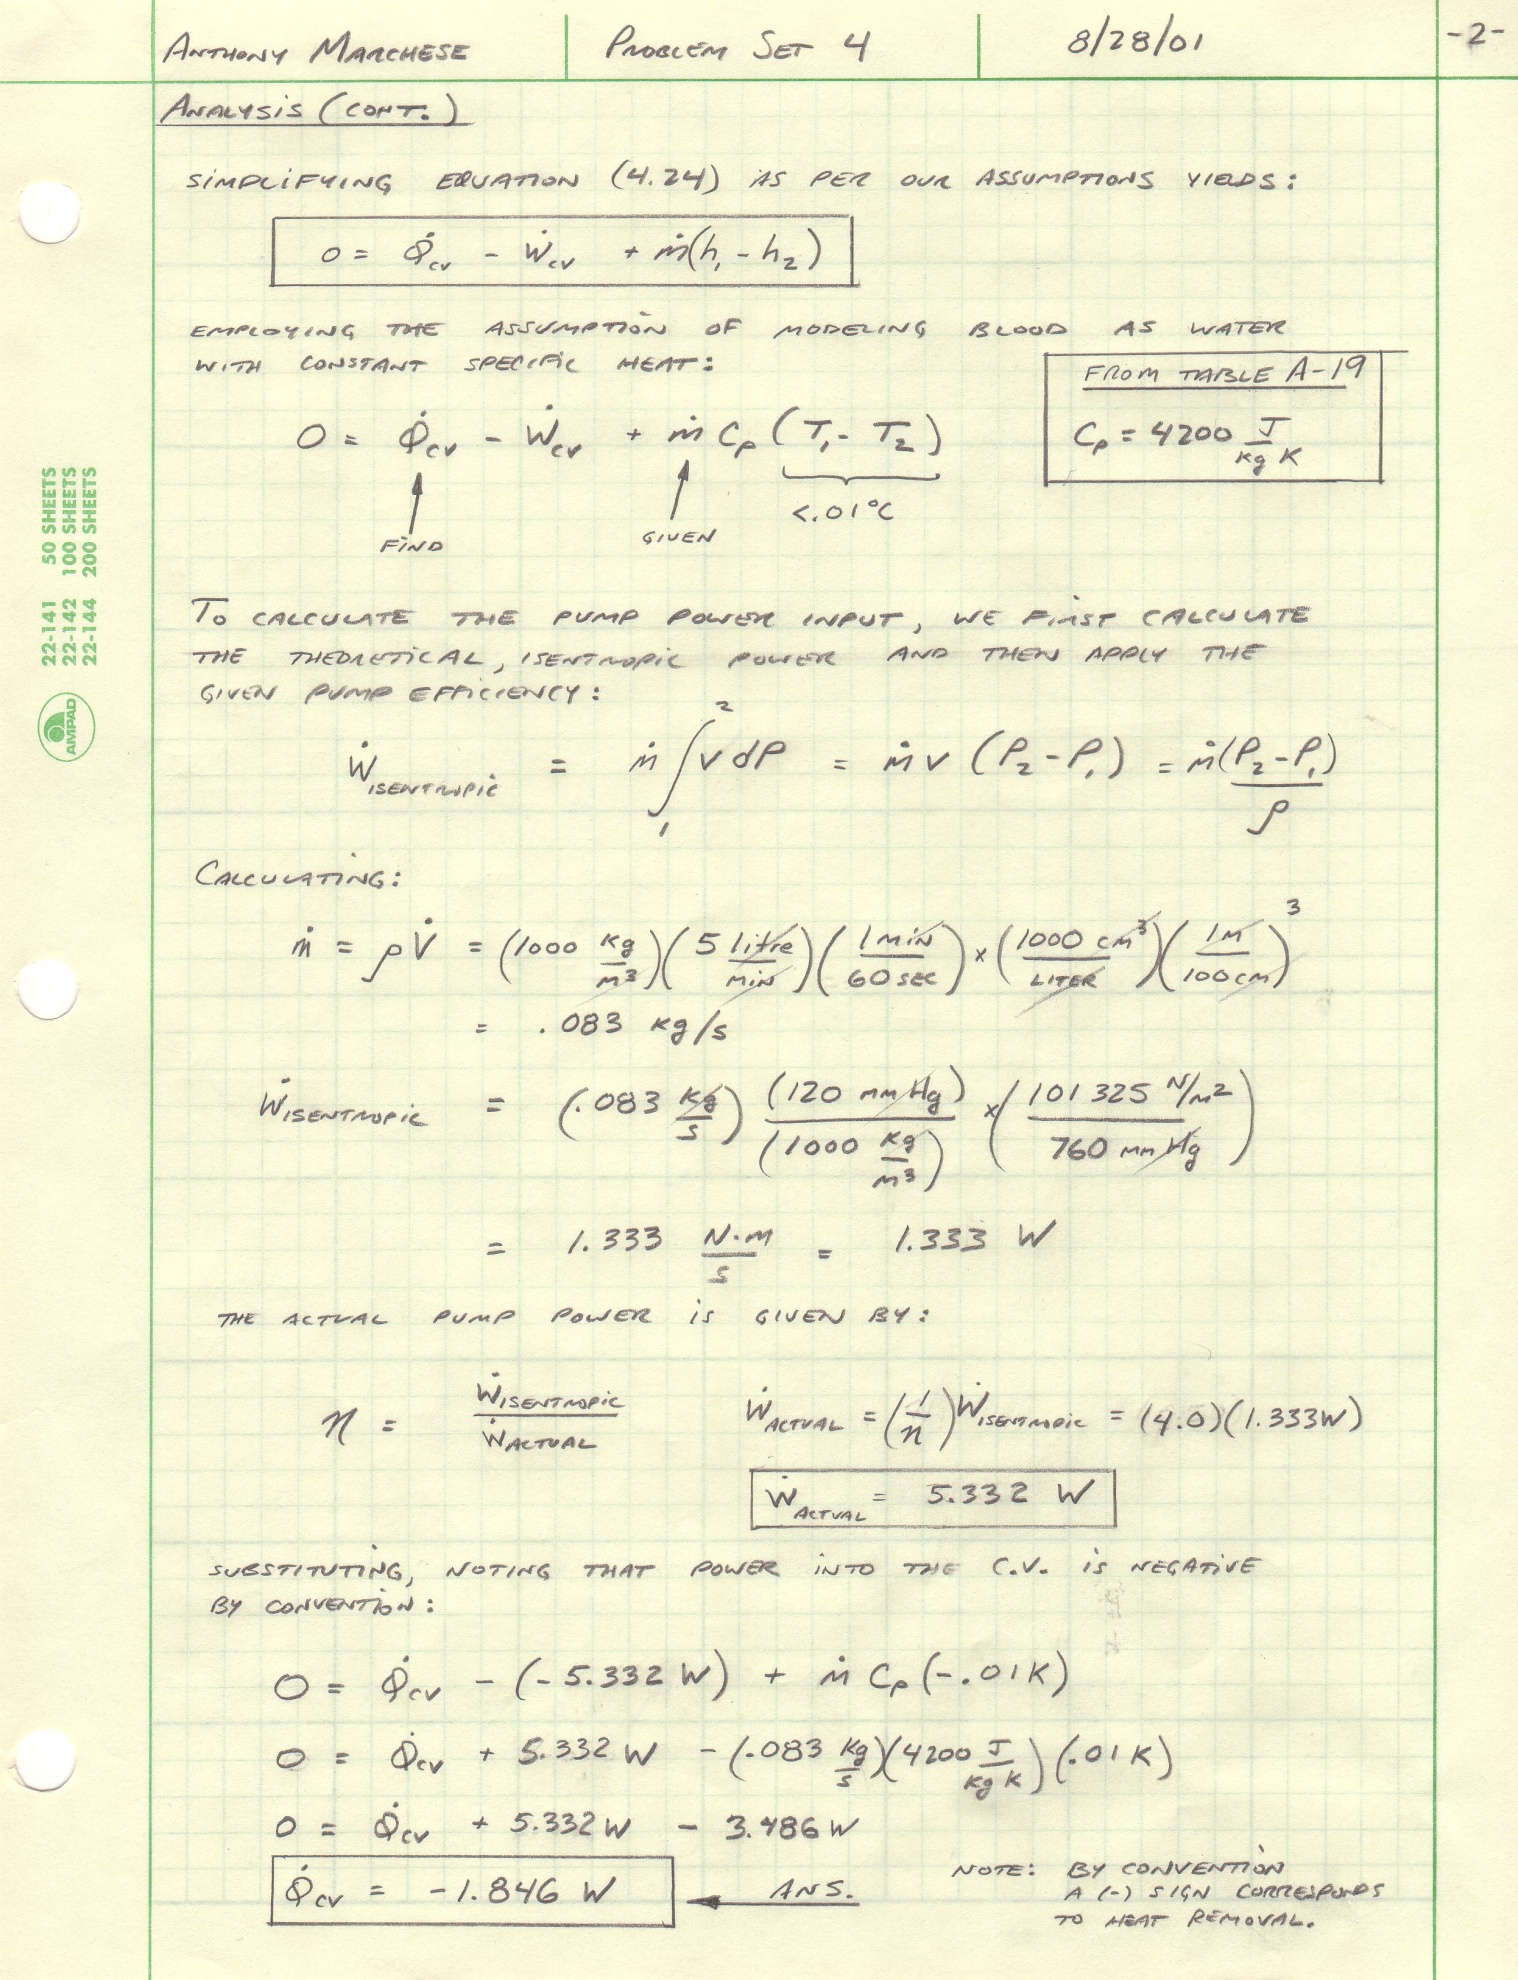 ANTHONY MARCHESE PROBLEM SET 4 8/28/01 -2-
ANALYSIS (CONT.)
SIMPLIFYING EQUATION (4.24) AS PER OUR ASSUMPTIONS YIELDS:
0 = Q̇cv - Ẇcv + ṁ(h₁ - h₂)
EMPLOYING THE ASSUMPTION OF MODELING BLOOD AS WATER
WITH CONSTANT SPECIFIC HEAT:
FROM TABLE A-19
Cp = 4200 J/kg K
0 = Q̇cv - Ẇcv + ṁ Cp (T₁ - T₂)
<.01°C
FIND GIVEN
TO CALCULATE THE PUMP POWER INPUT, WE FIRST CALCULATE
THE THEORETICAL, ISENTROPIC POWER AND THEN APPLY THE
GIVEN PUMP EFFICIENCY:
ẆISENTROPIC = ṁ ∫₁² v dP = ṁ v (P₂ - P₁) = ṁ(P₂ - P₁)/ρ
CALCULATING:
ṁ = ρV̇ = (1000 kg/m³)(5 litre/min)(1 min/60 sec) × (1000 cm³/LITER)(1M/100cm)³
= .083 kg/s
ẆISENTROPIC = (.083 kg/s) (120 mm Hg)/(1000 kg/m³) × (101 325 N/m²/760 mm Hg)
= 1.333 N·m/s = 1.333 W
THE ACTUAL PUMP POWER IS GIVEN BY:
η = ẆISENTROPIC/ẆACTUAL ẆACTUAL = (1/η) ẆISENTROPIC = (4.0)(1.333W)
ẆACTUAL = 5.332 W
SUBSTITUTING, NOTING THAT POWER INTO THE C.V. IS NEGATIVE
BY CONVENTION:
0 = Q̇cv - (-5.332 W) + ṁ Cp (-.01K)
0 = Q̇cv + 5.332 W - (.083 kg/s)(4200 J/kg K)(.01 K)
0 = Q̇cv + 5.332 W - 3.486 W
Q̇cv = -1.846 W ANS.
NOTE: BY CONVENTION
A (-) SIGN CORRESPONDS
TO HEAT REMOVAL.
22-141 50 SHEETS
22-142 100 SHEETS
22-144 200 SHEETS
AMPAD